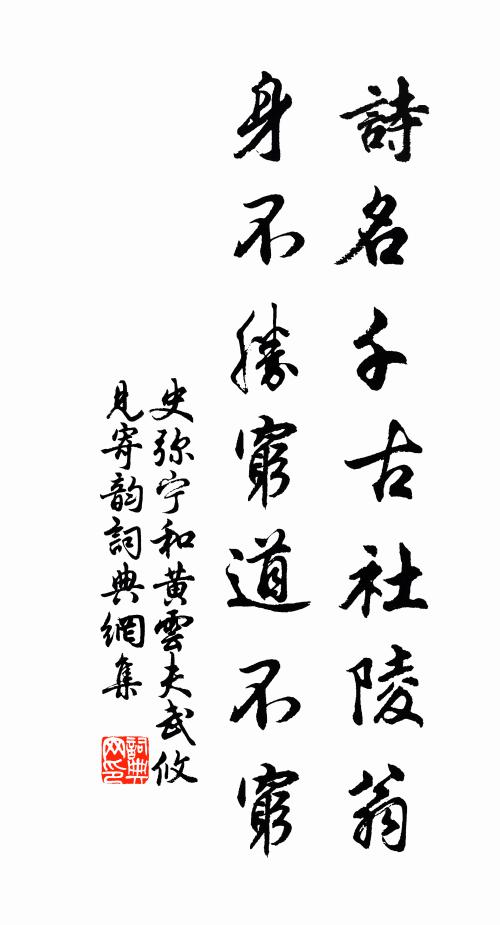 詩名千古社陵翁
身不勝窮道不窮
史弥宁和黄雲夫武攸
見寄韵詞典網集
詞典網印